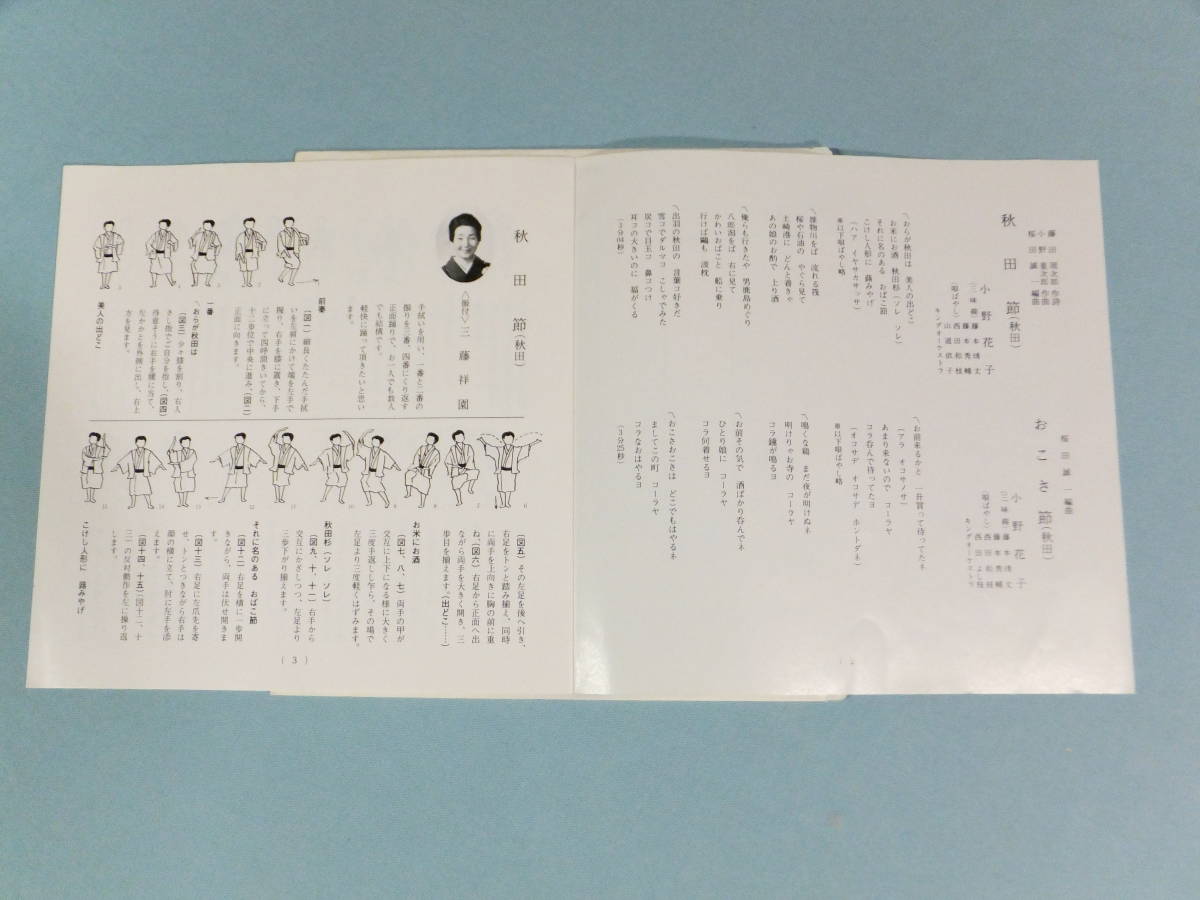 秋田節(秋田)
小野花子
キングオーケストラ
〽おらが秋田は 美人の出どこ
お米にお酒 秋田杉(ソレ ソレ)
それに名のある おばこ節
こけし人形に 蕗みやげ
(ハァ イヤサカサッサ)
※以下唄ばやし略
桜や石油の やぐら見て
土崎港に どんと着きゃ
あの娘のお酌で 上り酒
〽俺らも行きたや 男鹿島めぐり
八郎潟をば 右に見て
かわいおばこと 船に乗り
行けば鷗も 波枕
〽出羽の秋田の 言葉コ好きだ
雪コでダルマコ こしゃでみた
炭コで目玉コ 鼻コつけ
耳コの大きいのに 福がくる
(3分04秒)
おこさ節(秋田)
桜田誠一編曲
小野花子
キングオーケストラ
〽お前来るかと 一升買って待ってたネ
(アラ オコサノサ)
あまり来ないので コーラヤ
コラ呑んで待ってたヨ
(オコサデ オコサデ ホントダネ)
※以下唄ばやし略
〽鳴くな鶏 まだ夜が明けぬネ
明けりゃお寺の コーラヤ
コラ鐘が鳴るヨ
〽お前その気で 酒ばかり呑んでネ
ひとり娘に コーラヤ
コラ何着せるヨ
〽おこさおこさは どこでもはやるネ
ましてこの町 コーラヤ
コラなおはやるヨ
(3分25秒)
秋田節(秋田)
〈振付〉三藤祥園
手拭いを用い、一番と二番の
振りを三番、四番にくり返す
正面踊りで、お一人でも数人
でも結構です。
軽快に踊って頂きたいと思い
ます。
前奏
(図一)細長くたたんだ手拭
いを左肩にかけて端を左手で
握り、右手を膝に置き、下手
に立って四呼間きいてから、
十二単位で中央に進み、(図二)
正面に向きます。
一番
〽おらが秋田は
(図三)少々膝を割り、右人
さし指でご自分を指し、(図四)
得意そうに右手を腰に当て、
左かかとを外側に出し、右上
方を見ます。
美人の出どこ
(図五)その左足を後へ引き、
右足をトンと踏み揃え、同時
に両手を上向きに胸の前に重
ね、(図六)右足から正面へ出
ながら両手を大きく開き、三
歩目を揃えます。(出どこ……)
お米にお酒
(図七、八、七)両手の甲が
交互に上下になる様に大きく
三度手返しし乍ら、その場で
左足より三度軽くはずみます。
秋田杉(ソレ ソレ)
(図九、十、十一)右手から
交互にかざしつつ、左足より
三歩下がり揃えます。
それに名のある おばこ節
(図十二)右足を横に一歩開
きながら、両手は伏せ開きま
す。
(図十三)右足に左爪先を寄
せ、トンとつきながら右手は
顔の横に立て、肘に左手を添
(図十四、十五)図十二、十
三の反対動作を左に繰り返
します。
こけし人形に 蕗みやげ
(3)